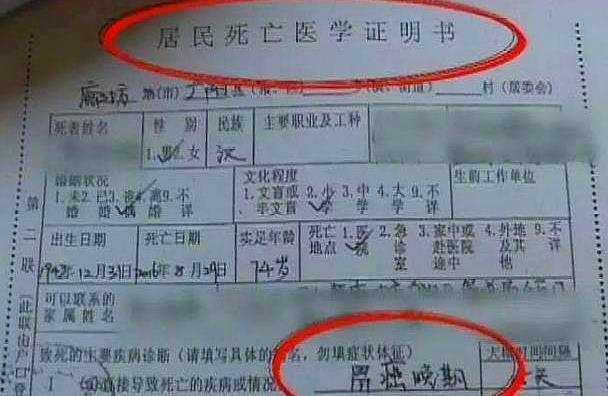 居民死亡医学证明书
廊坊 地(市) 县(市、区) 乡(镇、街道) 村(居委会)
死者姓名 性别 民族 主要职业及工种
1.男 2.女 汉
婚姻状况 文化程度 生前工作单位
1.未婚 2.已婚 3.丧偶 4.离婚 9.不详 1.文盲或半文盲 2.小学 3.中学 4.大学 9.不详
出生日期 死亡日期 实足年龄 死亡地点 1.医院 2.急诊室 3.家中或赴医院途中 4.外地及其他 9.不详
1942年12月31日 2016年8月29日 74岁
可以联系的家属姓名
致死的主要疾病诊断(请填写具体的病名,勿填症状体征)
I (a)直接导致死亡的疾病或情况 胃癌晚期 天
第二联